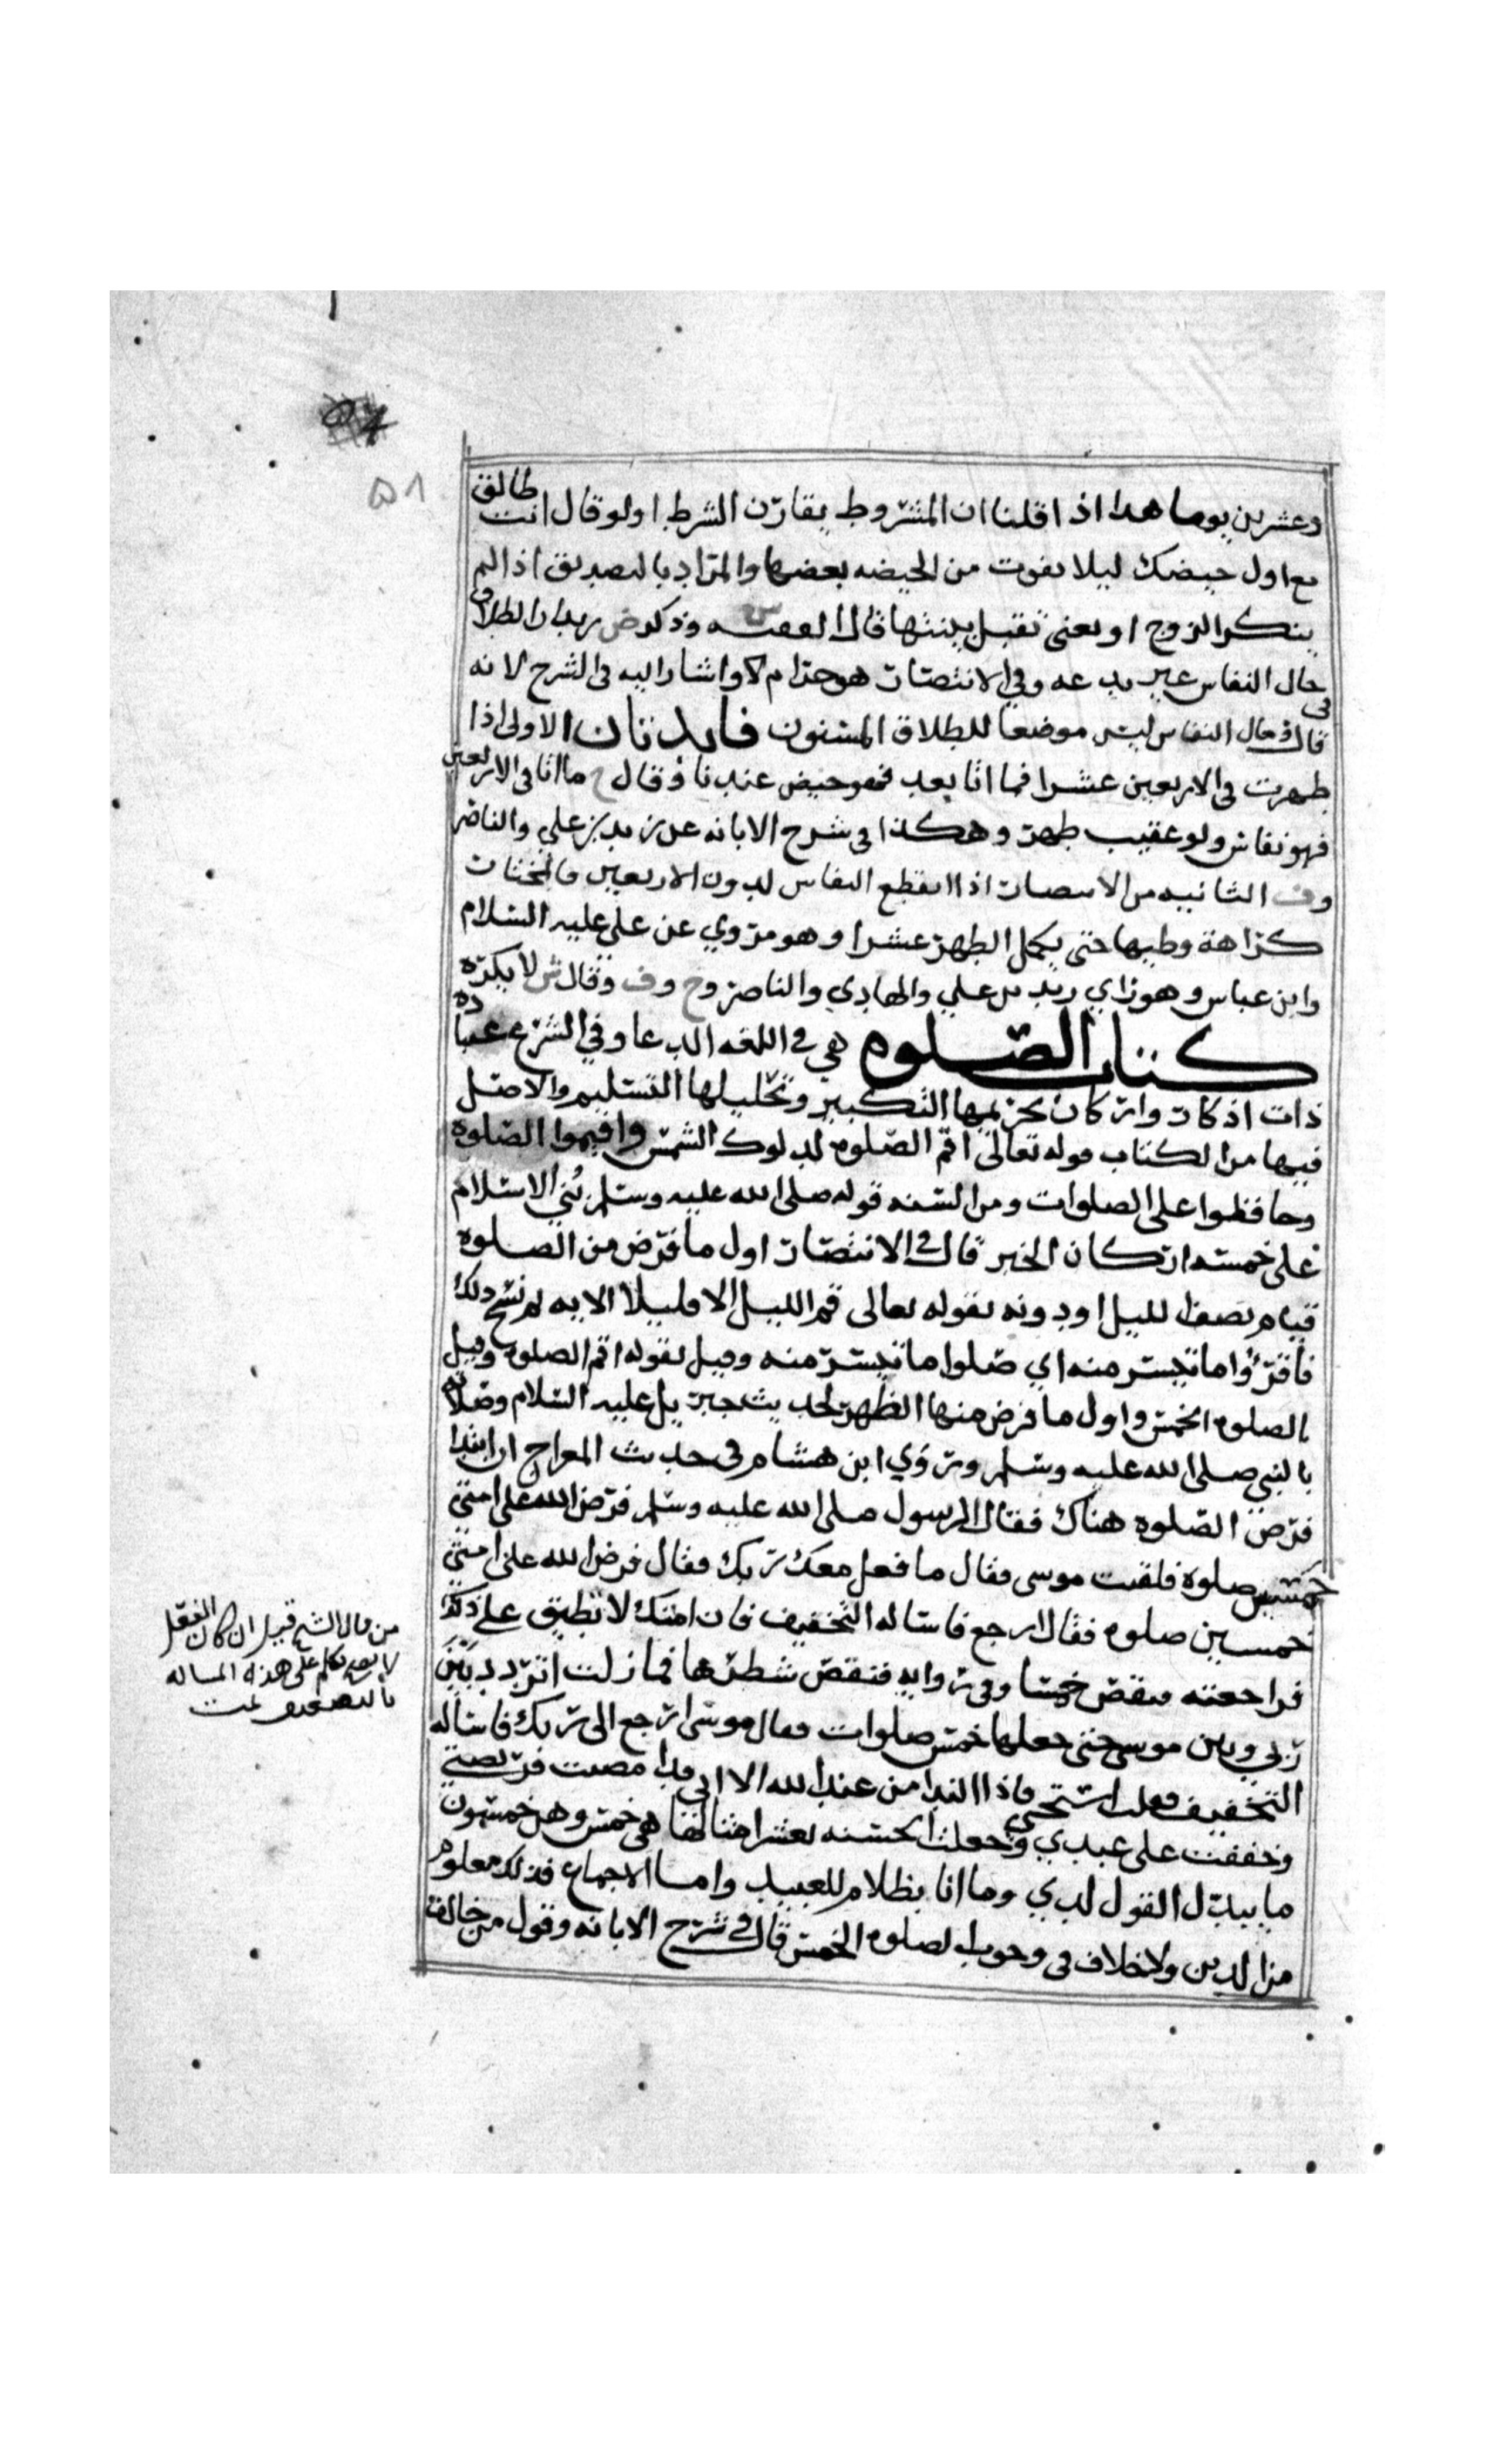 ٥٨
وعشرين يوما هدا اذا قلنا ان المشروط يقارن الشرط اولو قال انت طالق
مع اول حيضك ليلا يفوت من الحيضه بعضها والمراد بالتصديق اذا لم
ينكر الزوج او يعني تقبل ببينتها قال الفقيه س وذكر ض زيد ان الطلاق
في حال النفاس غير بدعه وفي الانتصار هو حرام لا واشار اليه في الشرح لانه
قال في حال النفاس ليس موضعا للطلاق المسنون فايدتان الاولى اذا
طهرت في الاربعين عشرا فما اتا بعد فهو حيض عندنا وقال ح ما اتا في الاربعين
فهو نفاس ولو عقيب طهر وهكذا في شرح الابانه عن زيد بن علي والناصر
وف الثانيه من الانتصار اذا انقطع النفاس لدون الاربعين فالمختار
كراهة وطيها حتى يكمل الطهر عشرا وهو مروي عن علي عليه السلام
وابن عباس وهو راي زيد بن علي والهادي والناصر وح وف وقال ش لا يكره
كتاب الصلوه هي في اللغه الدعا وفي الشرع عباده
ذات اذكار واركان تحريمها التكبير وتحليلها التسليم والاصل
فيها من الكتاب قوله تعالى اقم الصلوه لدلوك الشمس واقيموا الصلوه
وحافظوا على الصلوات ومن السنه قوله صلى الله عليه وسلم بُني الاسلام
على خمسه اركان الخبر قال في الانتصار اول ما فرض من الصلوه
قيام نصف الليل او دونه بقوله تعالى قم الليل الا قليلا الايه ثم نسخ ذلك
فاقرؤا ما تيسر منه اي صلوا ما تيسر منه وقيل بقوله اقم الصلوه وقيل
بالصلوه الخمس واول ما فرض منها الظهر لحديث جبريل عليه السلام وصلاته
بالنبي صلى الله عليه وسلم وروي ابن هشام في حديث المعراج ان ابتدا
فرض الصلوه هناك فقال الرسول صلى الله عليه وسلم فرض الله على امتي
خمسين صلوه فلقيت موسى فقال ما فعل معك ربك فقال فرض الله على امتي
خمسين صلوه فقال ارجع فاساله التخفيف فان امتك لا تطيق على ذلك
فراجعته فنقص خمسا وفي روايه فنقص شطرها فما زلت اتردد بين
ربي وبين موسى حتى جعلها خمس صلوات فقال موسى ارجع الى ربك فاساله
التخفيف فقلت استحي فاذا الندا من عند الله الا اني قد امضيت فريضتي
وخففت على عبيدي وجعلت الحسنه بعشر امثالها هي خمس وهن خمسون
ما يبدل القول لدي وما انا بظلام للعبيد واما الاجماع فذلك معلوم
من الدين ولا خلاف في وجوب الصلوه الخمس قال في شرح الابانه وقول من خالف
من قال الشيخ قيل ان كان الفعل
على هذه المساله